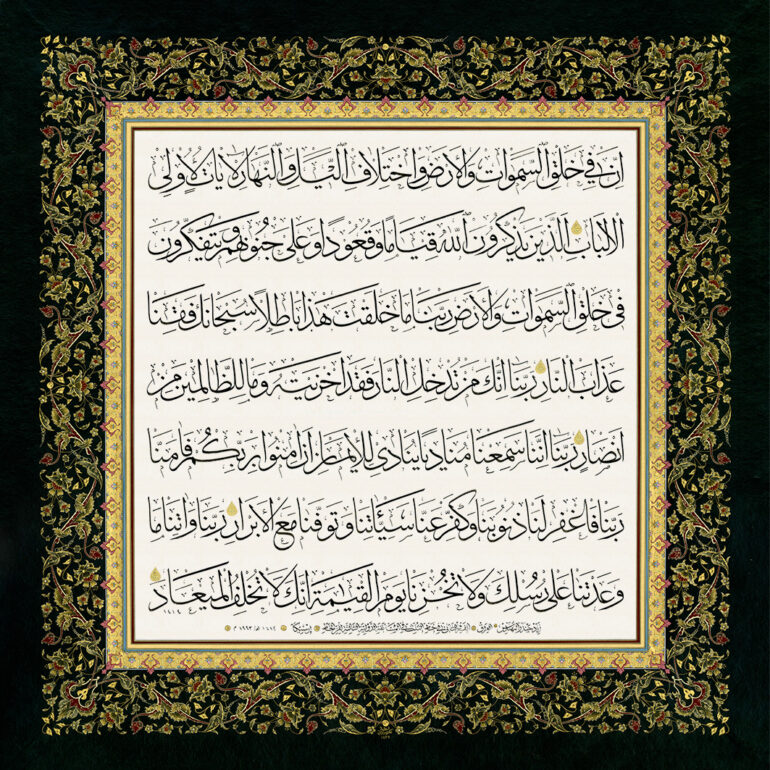 ان في خلق السموات والارض واختلاف الليل والنهار لايات لاولي
الالباب الذين يذكرون الله قياما وقعودا وعلى جنوبهم ويتفكرون
في خلق السموات والارض ربنا ما خلقت هذا باطلا سبحانك فقنا
عذاب النار ربنا انك من تدخل النار فقد اخزيته وما للظالمين من
انصار ربنا اننا سمعنا مناديا ينادي للايمان ان امنوا بربكم فامنا
ربنا فاغفر لنا ذنوبنا وكفر عنا سيئاتنا وتوفنا مع الابرار ربنا واتنا ما
وعدتنا على رسلك ولا تخزنا يوم القيامة انك لا تخلف الميعاد
١٤١٤
١٩٩٣ م